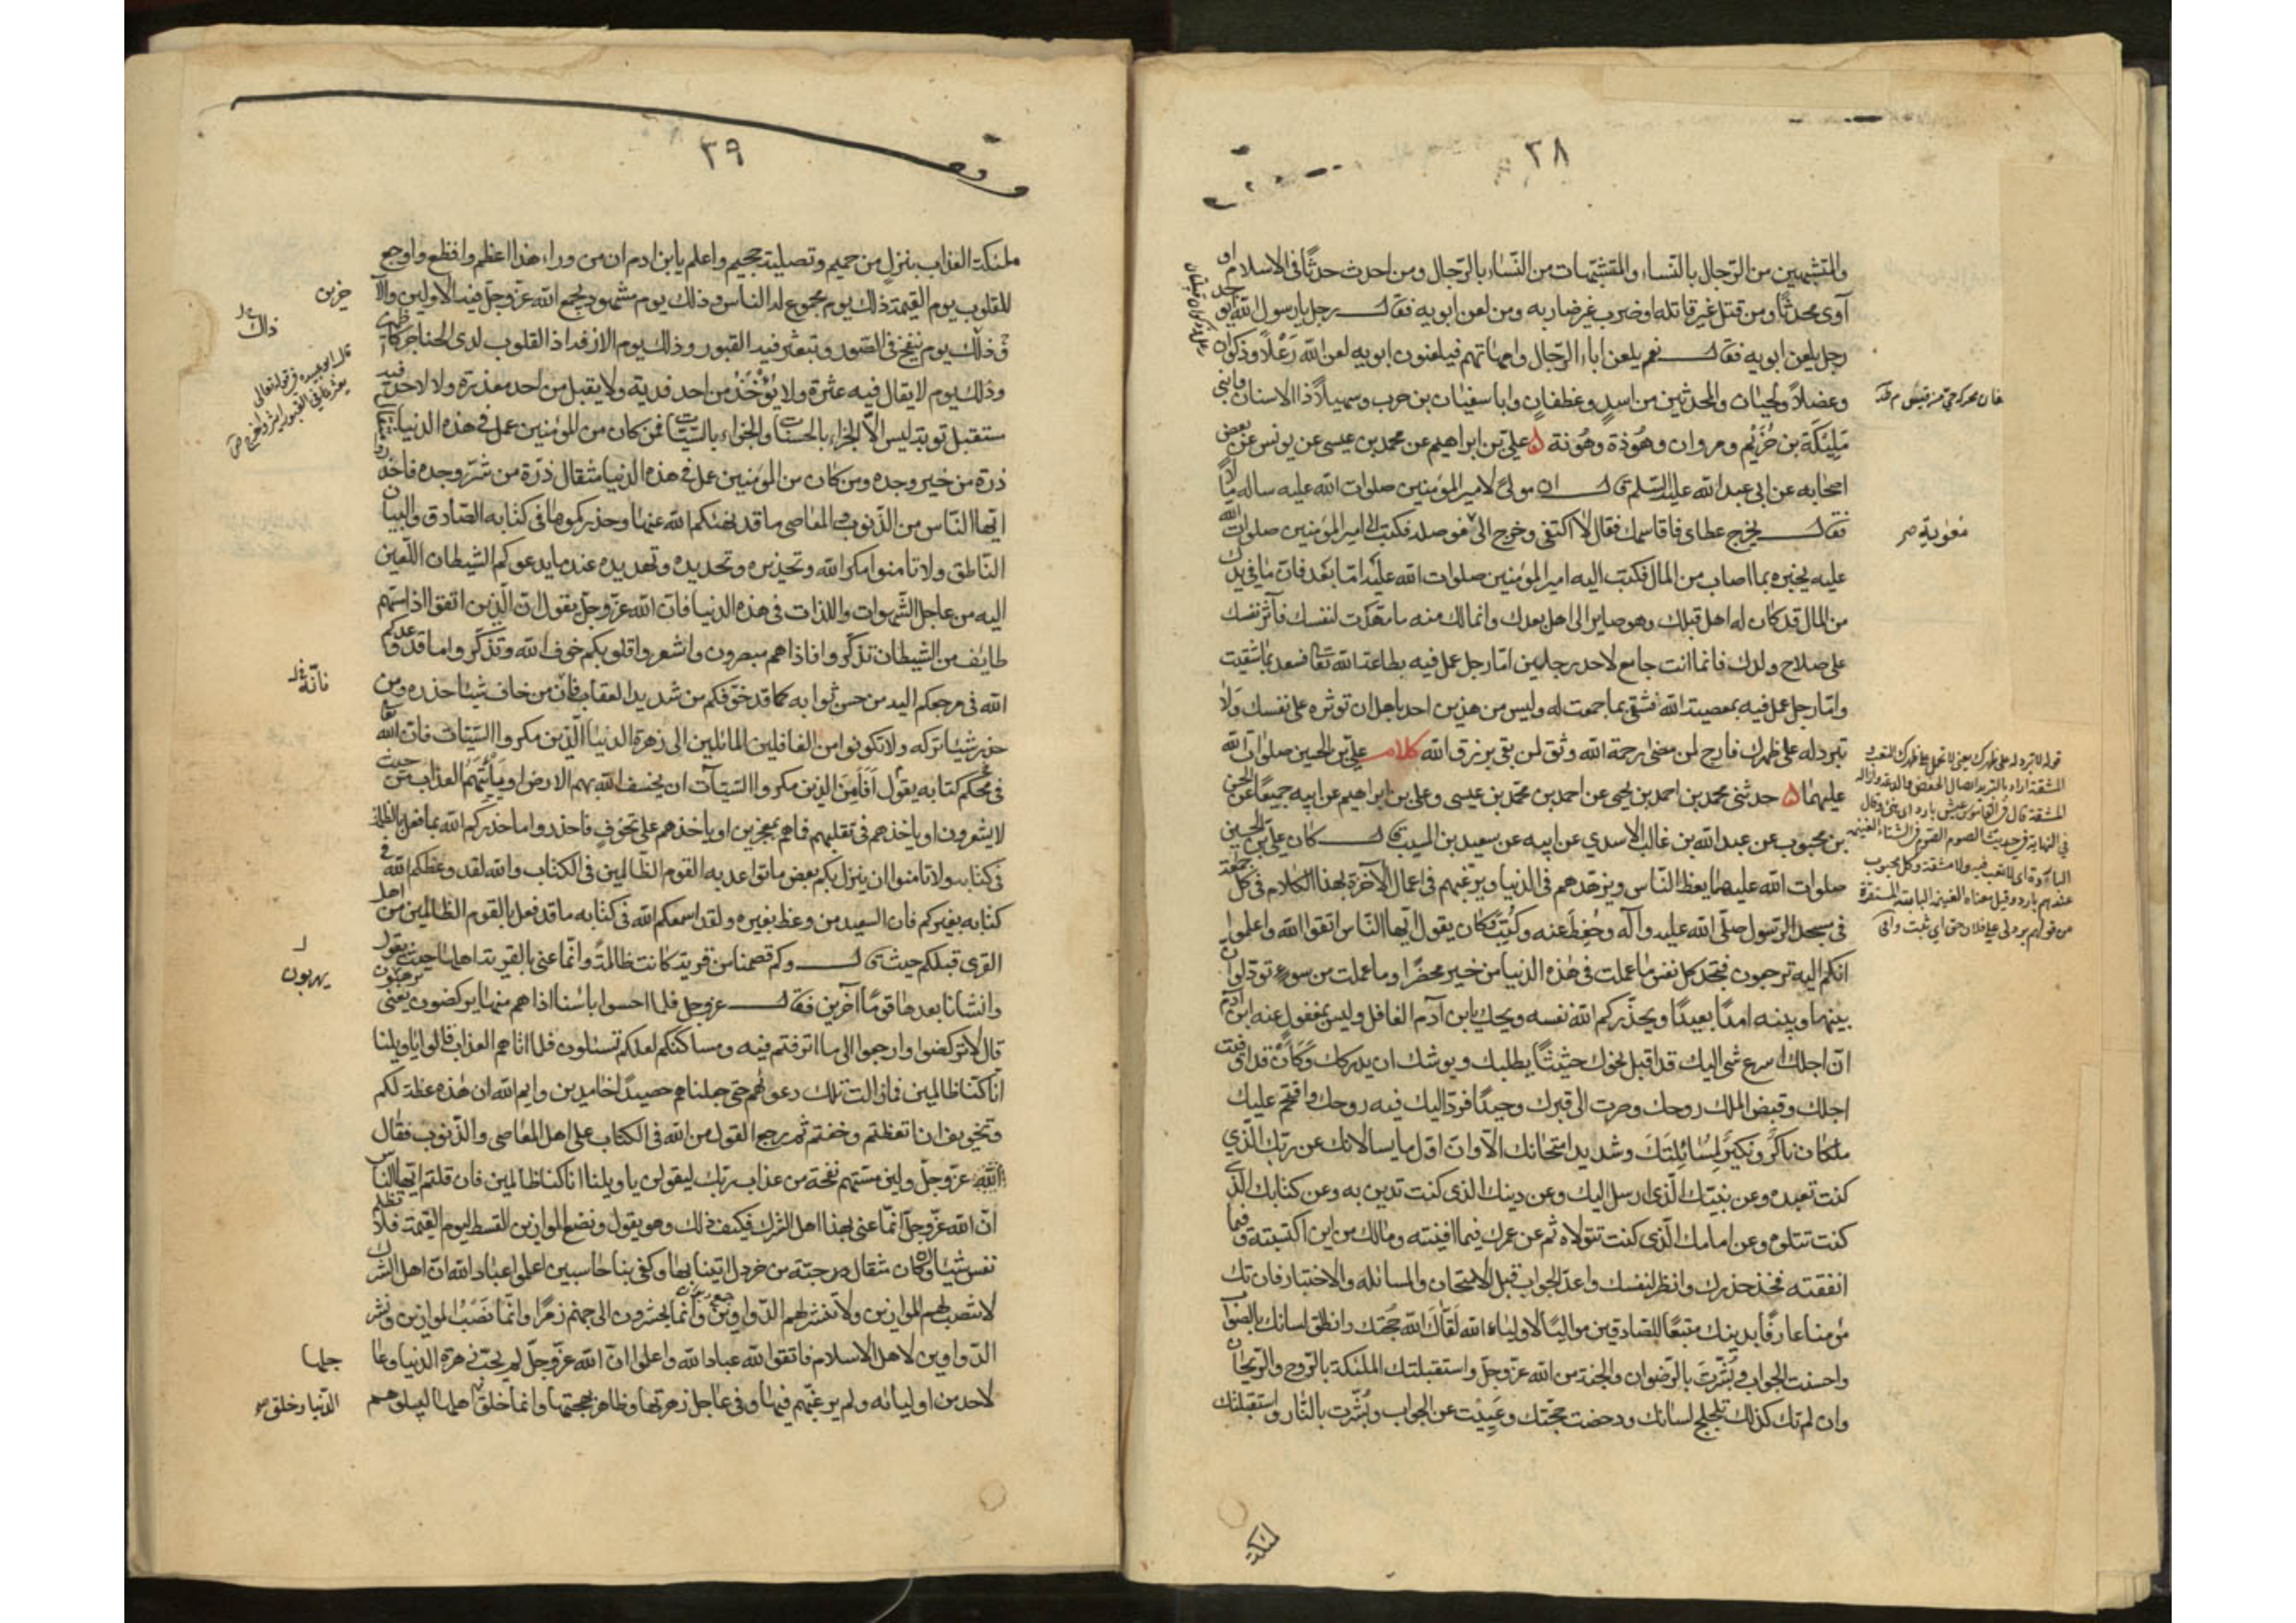 ٣٨
والمتشبهين من الرّجال بالنّساء والمتشبّهات من النّساء بالرّجال ومن احدث حدثًا فى الاسلام او
آوى محدثًا ومن قتل غير قاتله او ضرب غير ضاربه ومن لعن ابويه فقال رجل يا رسول الله ايو جد
رجل يلعن ابويه فقال نعم يلعن اباء الرّجال وامهاتهم فيلعنون ابويه لعن الله رَعْلًا وذكوان
وعضلًا ولحيان والمجذمين من اسدٍ وغطفان وابا سفيان بن حرب وسهيلًا ذا الاسنان وابنى
مَلِيْكَة بن حُزَيْم ومروان وهُوذة وهُونة ۵ علي بن ابراهيم عن محمد بن عيسى عن يونس عن بعض
اصحابه عن ابى عبد الله عليه السّلم قال ان مولى لامير المؤمنين صلوات الله عليه ساله مالًا
فقال يخرج عطاى فاقاسمك فقال لا اكتفى وخرج الى معوية فوصله فكتب الى امير المؤمنين صلوات الله
عليه يخبره بما اصاب من المال فكتب اليه امير المؤمنين صلوات الله عليه امّا بَعْد فانّ ما فى يدك
من المال قد كان له اهل قبلك وهو صاير الى اهل بعدك وانما لك منه ما مهّدت لنفسك فآثر نفسك
على صلاح ولدك فانما انت جامع لاحد رجلين امّا رجل عمل فيه بطاعة الله تعا فسعد بما شقيت
وامّا رجل عمل فيه بمعصية الله فشقى بما جمعت له وليس من هذين احد باهل ان توثره على نفسك ولا
تبرد له على ظهرك فارج لمن مضى رحمة الله وثق لمن بقى برزق الله كلام علي بن الحسين صلوات الله
عليهما ۵ حدثنى محمد بن احمد بن يحيى عن احمد بن محمّد بن عيسى وعلى بن ابراهيم عن ابيه جميعًا عن الحسن
بن محبوب عن عبد الله بن غالب الاسدي عن ابيه عن سعيد بن المسيب قال كان علي بن الحسين
صلوات الله عليهما يعظ النّاس ويزهّدهم فى الدّنيا ويرغّبهم فى اعمال الآخرة بهذا الكلام فى كل جمعة
فى مسجد الرّسول صلّى الله عليه وآله وحُفِظَ عنه وكُتِبَ كان يقول ايّها النّاس اتقوا الله واعلموا
انكم اليه ترجعون فتجد كل نفس ما عملت فى هذه الدنيا من خير محضرًا وما عملت من سوءٍ تودّ لو ان
بينها وبينه امدًا بعيدًا ويحذّركم الله نفسه ويحك يا بن آدم الغافل وليس بمغفول عنه ابن آدم
انّ اجلك اسرع شى اليك قد اقبل نحوك حثيثًا يطلبك ويوشك ان يدركك وَكَأَنْ قد اوفيت
اجلك وقبض الملك روحك وصرت الى قبرك وحيدًا فردّ اليك فيه روحك واقتحم عليك
ملكان ناكر ونكير لِمُسَائِلَتِكَ وشديد امتحانك الا وانّ اول ما يسالانك عن ربّك الّذي
كنت تعبده وعن نبيّك الّذى ارسل اليك وعن دينك الذى كنت تدين به وعن كتابك الذي
كنت تتلوه وعن امامك الّذى كنت تتولاه ثم عن عمرك فيما افنيته ومالك من اين اكتسبته وفيما
انفقته فخذ حذرك وانظر لنفسك واعدّ الجواب قبل الامتحان والمسائله والاختبار فان تك
مؤمنا عارفًا بدينك متبعًا للصّادقين مواليًا لاولياء الله لَقَّاكَ الله حُجّتك وانطق لسانك بالصّواب
واحسنت الجواب وبُشِّرتَ بالرّضوان والجنة من الله عزّ وجلّ واستقبلتك الملئكة بالرّوح والرّيحان
وان لم تك كذلك تلجلج لسانك ودحضت حجّتك وعَيِيْت عن الجواب وبُشّرت بالنّار واستقبلتك
معوية صر
٣٩
ملئكة العذاب بنزلٍ من حميم وتصلية جحيم واعلم يا بن ادم ان من وراء هذا اعظم وافظع واوجع
للقلوب يوم القيمة ذلك يوم مجموع له الناس وذلك يوم مشهود يجمع الله عزّ وجلّ فيه الاولين والآ
وذلك يوم ينفخ فى الصّور وتبعثر فيه القبور وذلك يوم الازفة اذ القلوب لدى الحناجر كاظمين
وذلك يوم لا يقال فيه عثرة ولا يُؤْخَذُ من احد فدية ولا يقبل من احد معذرة ولا لاحد فيه
مستقبل توبة ليس الّا الجزاء بالحسنات والجزاء بالسّيّئات فمن كان من المؤمنين عمل فى هذه الدنيا
ذرّة من خير وجده ومن كان من المؤمنين عمل فى هذه الدّنيا مثقال ذرّة من شرّ وجده فاحذروا
ايّها النّاس من الذّنوب والمعاصى ما قد نهيكم الله عنها وحذركموها فى كتابه الصّادق والبيان
النّاطق ولا تامنوا مكر الله وتحذيره وتهديده عند ما يدعوكم الشّيطان اللّعين
اليه من عاجل الشّهوات واللذات فى هذه الدنيا فانّ الله عزّ وجلّ يقول انّ الّذين اتقوا اذا مسّهم
طائف من الشّيطان تذكّروا فاذا هم مبصرون واشعروا قلوبكم خوف الله وتذكّروا ما قد وعدكم
الله فى مرجعكم اليه من حسن ثوابه كما قد خوّفكم من شديد العقاب فانّه من خاف شيئا حذره ومن
حذر شيئا تركه ولا تكونوا من الغافلين المائلين الى زهرة الدنيا الّذين مكروا السّيّئات فانّ الله تعا
فى محكم كتابه يقول أَفَأَمِنَ الّذين مكروا السّيّئآت ان يخسف الله بهم الارض او يَأْتِيَهُمُ العذاب من حيث
لا يشعرون او ياخذهم فى تقلبهم فما هم بمعجزين او ياخذهم على تخوّفٍ فاحذروا ما حذركم الله بما فعل بالظلمة
فى كتابه ولا تامنوا ان ينزل بكم بعض ما تواعد به القوم الظّالمين فى الكتاب والله لقد وعظكم الله فى
كتابه بغيركم فان السعيد من وعظ بغيره ولقد اسمعكم الله فى كتابه ما قد فعل بالقوم الظالمين من اهل
القرى قبلكم حيث قال وكم قصمنا من قرية كانت ظالمة وانّما عنى بالقرية اهلها حيث يقول
وانشانا بعدها قومًا آخرين فقال عزّ وجل فلما احسوا باسنا اذا هم منها يركضون يعنى يهربون
قال لا تركضوا وارجعوا الى ما اترفتم فيه ومساكنكم لعلكم تسئلون فلما اتاهم العذاب قالوا يا ويلنا
انّا كنّا ظالمين فما زالت تلك دعوٰهم حتى جعلناهم حصيدًا خامدين وايم الله ان هذه عظة لكم
وتخويف ان اتعظتم وخفتم ثم رجع القول من الله فى الكتاب على اهل المعاصى والذّنوب فقال
الله عزّ وجلّ ولئن مسّتهم نفحة من عذاب ربك ليقولن يا ويلنا انا كنا ظالمين فان قلتم ايّها النّاس
انّ الله عزّ وجلّ انّما عنى بهذا اهل الشرك فكيف ذلك وهو يقول ونضع الموازين القسط ليوم القيمة فلا تظلم
نفس شيئا وان كان مثقال حبّة من خردل اتينا بها وكفى بنا حاسبين اعلموا عباد الله انّ اهل الشرك
لا تنصب لهم الموازين ولا تنشر لهم الدّواوين وانّما يحشرون الى جهنم زمرًا وانّما نَصْبُ الموازين ونشر
الدّواوين لاهل الاسلام فاتقوا الله عباد الله واعلموا انّ الله عزّ وجلّ لم يحبّ زهرة الدنيا وعاجلها
لاحد من اوليائه ولم يرغّبهم فيها وفى عاجل زهرتها وظاهر بهجتها وانما خلق اهلها ليبلوهم
ذلك
فانّه
يهربون